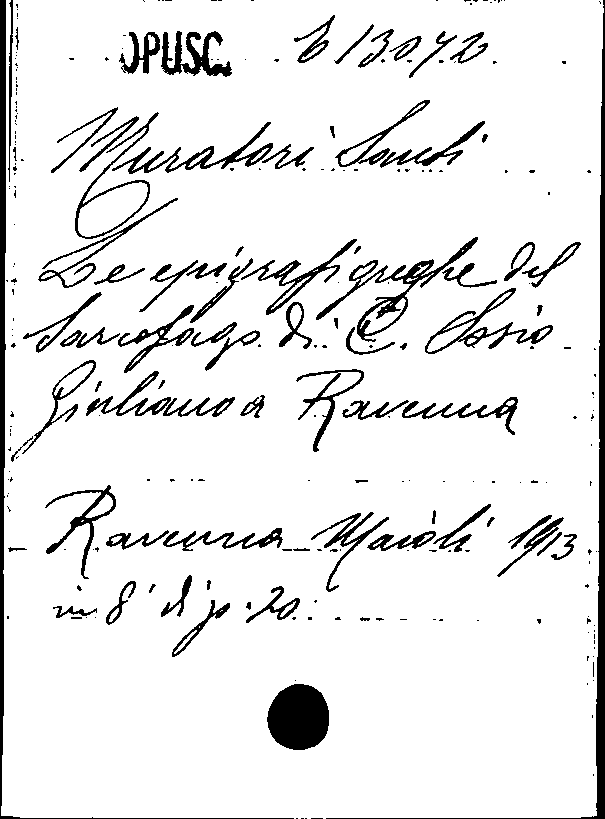 OPUSC. E 13072.
Muratori Santi
Le epigrafi greghe del
Sarcofago di C. Sosio
Giuliano a Ravenna
Ravenna Maioli 1913
in 8° di p. 20.